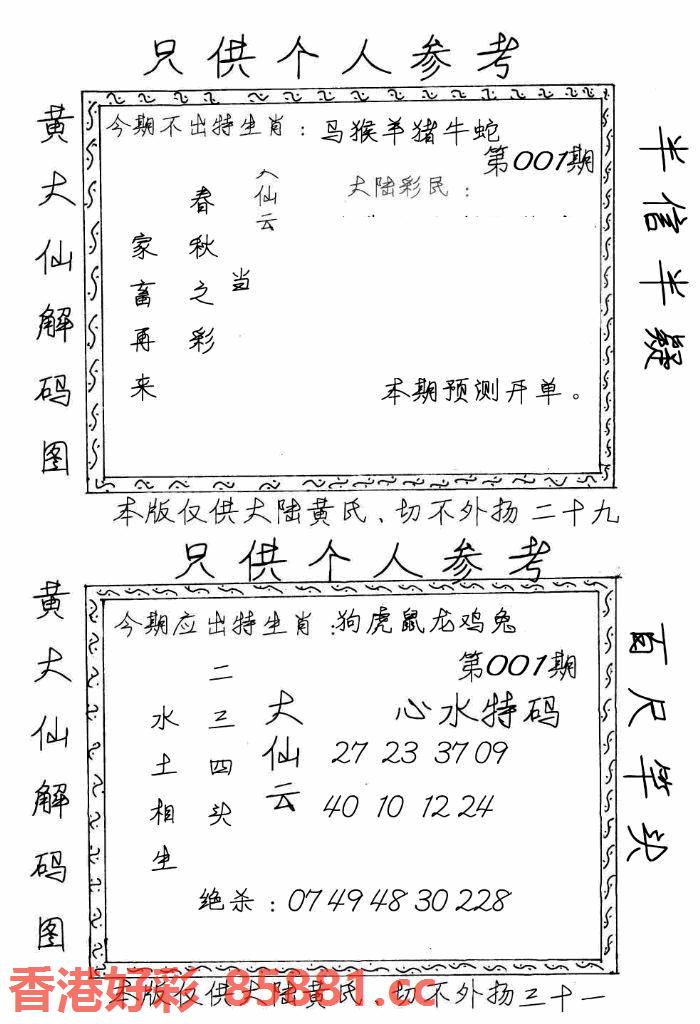 只供个人参考
黄大仙解码图
今期不出特生肖：马猴羊猪牛蛇
第001期
大陆彩民：
仙云
当
春秋之彩
家畜再来
本期预测开单。
半信半疑
本版仅供大陆黄氏、切不外扬二十九
只供个人参考
黄大仙解码图
今期应出特生肖：狗虎鼠龙鸡兔
第001期
心水特码
27 23 37 09
40 10 12 24
大仙云
二三四头
水土相生
绝杀：07 49 48 30 22 8
百尺竿头
本版仅供大陆黄氏、切不外扬三十一
香港好彩 85881.cc